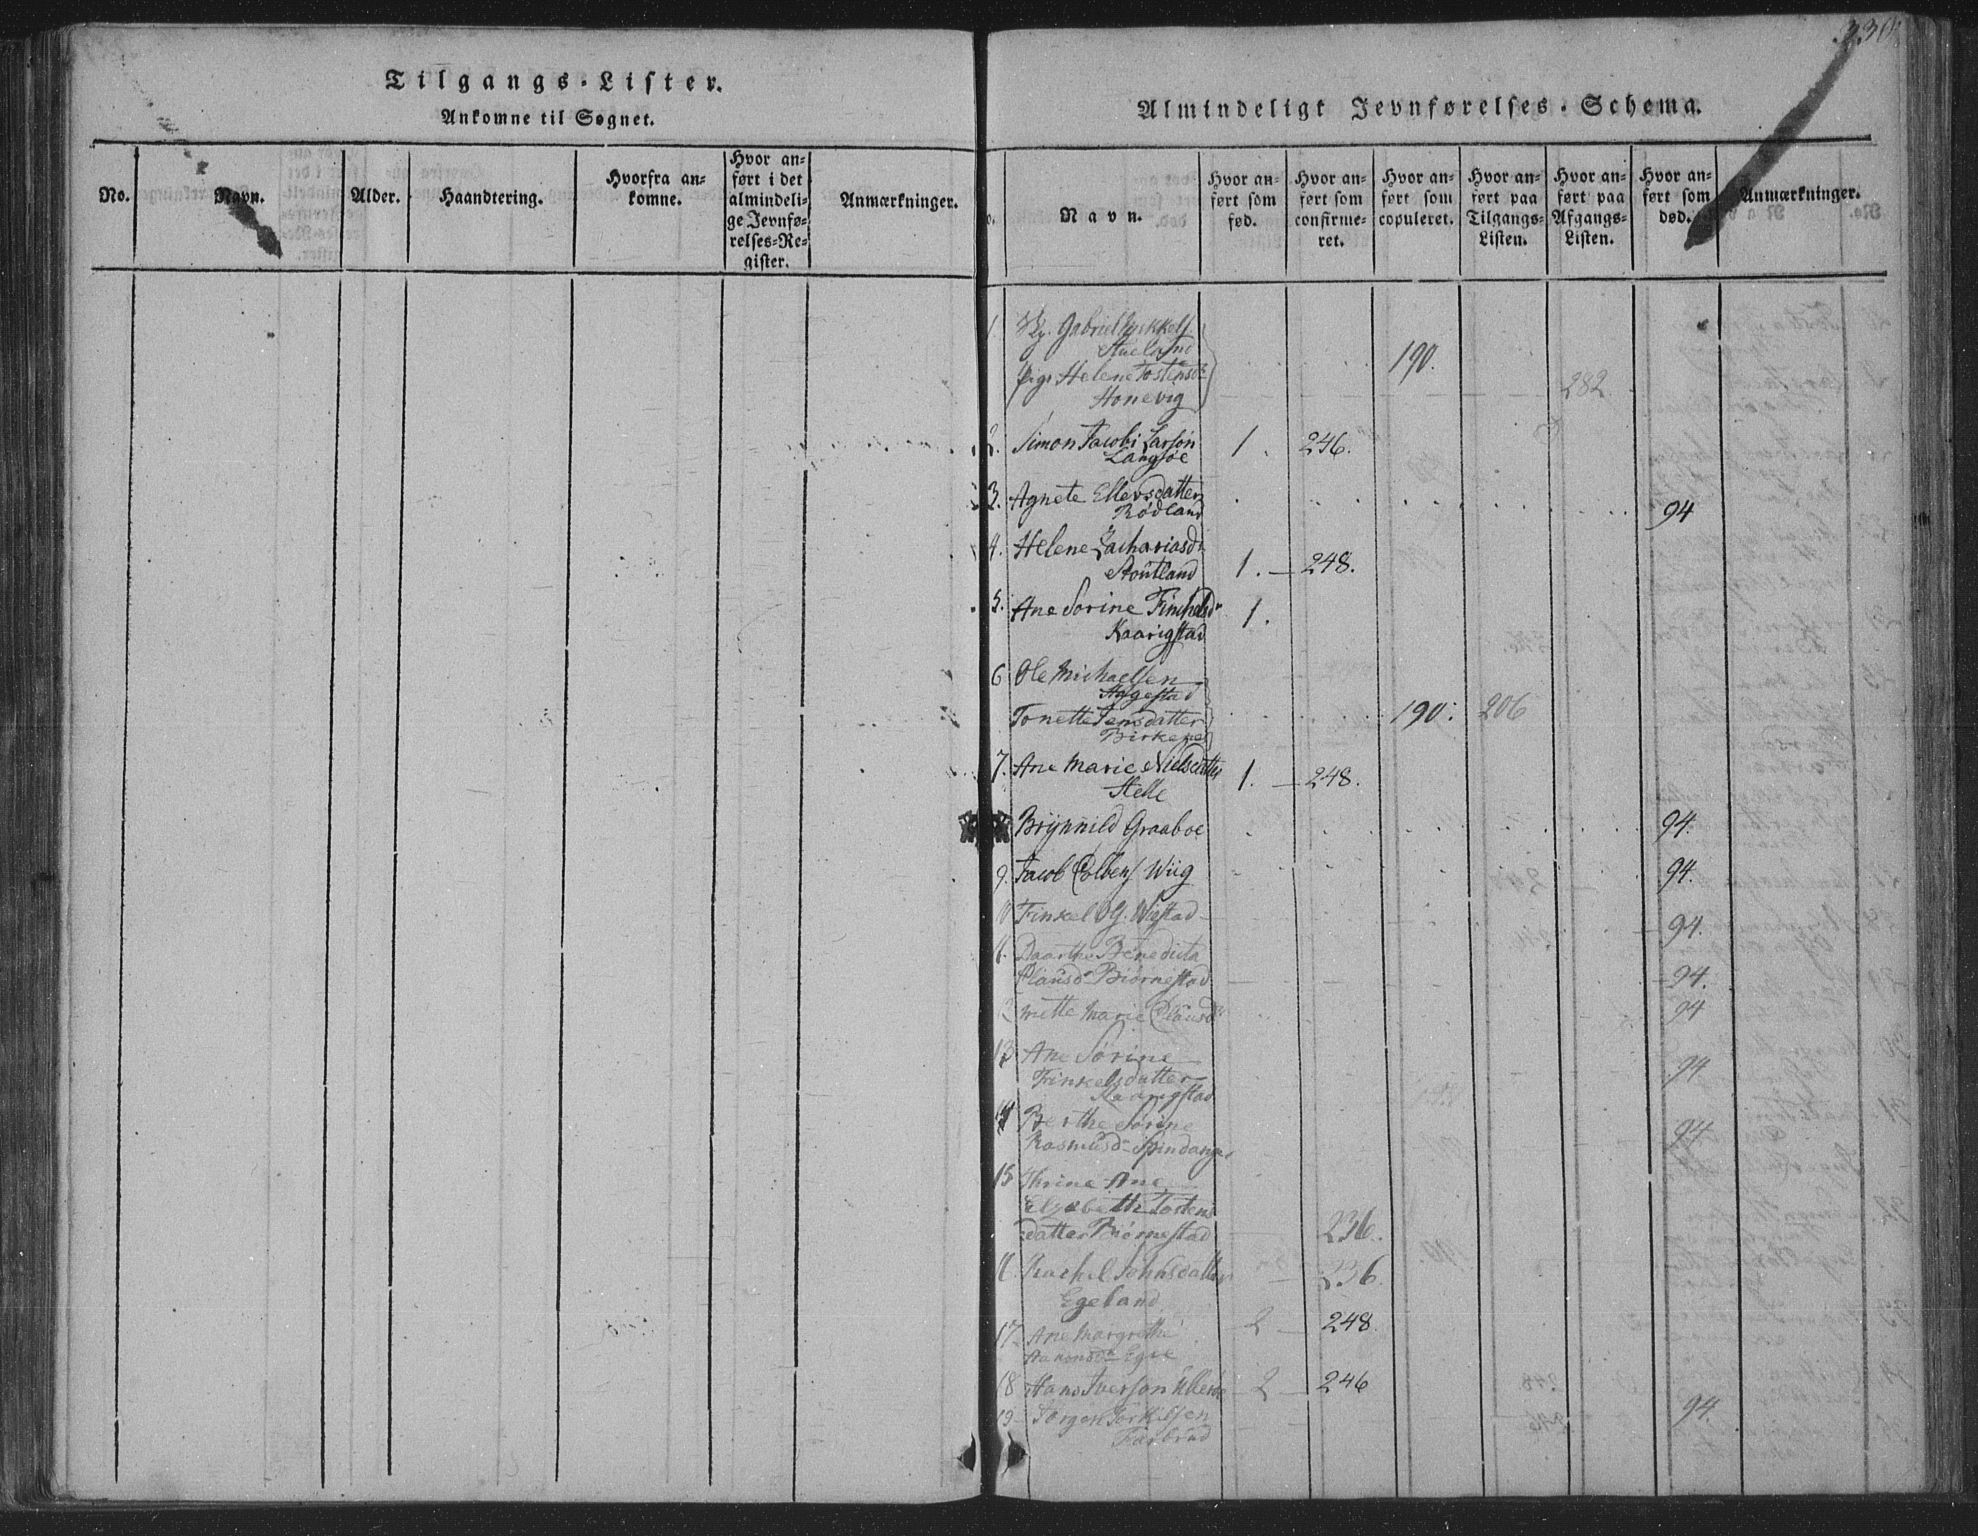 Tilgangs-Lister.
Ankomne til Sognet.
No.
Navn.
Alder.
Haandtering.
Hvorfra an-
komne.
Hvor an-
ført i det
almindeli-
ge Jevnfø-
relses-Re-
gister.
Anmærkninger.
330
Almindeligt Jevnførelses-Schema.
Navn.
Hvor an-
ført som
fød.
Hvor an-
ført som
confirme-
ret.
Hvor an-
ført som
copuleret.
Hvor an-
ført paa
Tilgangs-
Listen.
Hvor an-
ført paa
Afgangs-
Listen.
Hvor an-
ført som
død.
Anmærkninger.
1. Gabriel
190.
Helene Tostensdr
Honevig 282
2. Simon Jacobi Larsøn 1. 246.
Langsøe
3. Agnete Ellersdatter
Rødland 94
4. Helene Zachariasdr
Stoutland 1. 248.
5. Ane Sorine 1.
Kaarigstad
6 Ole Michaelsen
Aggestad
Tonette Jensdatter 190. 206
Birkener
7. Ane Marie Nielsdatter 1. 248.
Helle
Brynnild Graaboe 94.
9. Jacob Colbens Wiig 94.
Finkel 94.
Benedicta
Clausdr Biørnestad 94.
Mette Marie Clausdr 94
13 Ane Sørine
Finkelsdatter 94
Kaarigstad
14 Berthe Sorine 94
Rasmusdr Spindanger
15 Thrine Ane
Elisabeth Tostens
datter Biørnestad 236.
Rachel Tønnesdatter 236.
Egeland
17. Ane Margrethe 2 248.
Aanonsdr Egie
18 Hans Iverson 2 246
19 Jørgen Torkilsen 94.